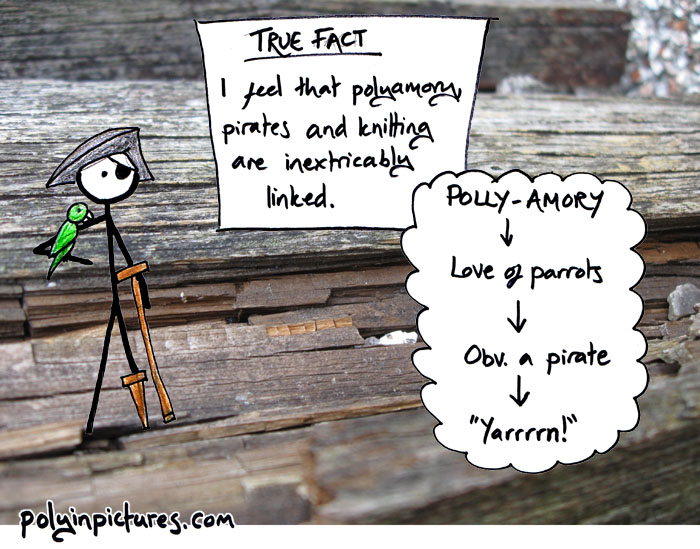 TRUE FACT
I feel that polyamory,
pirates and knitting
are inextricably
linked.
POLLY-AMORY
↓
Love of parrots
↓
Obv. a pirate
↓
"Yarrrrn!"
polyinpictures.com